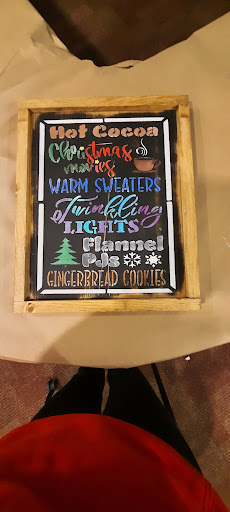 Hot Cocoa
Christmas
movies
WARM SWEATERS
Twinkling
LIGHTS
Flannel
PJs
GINGERBREAD COOKIES